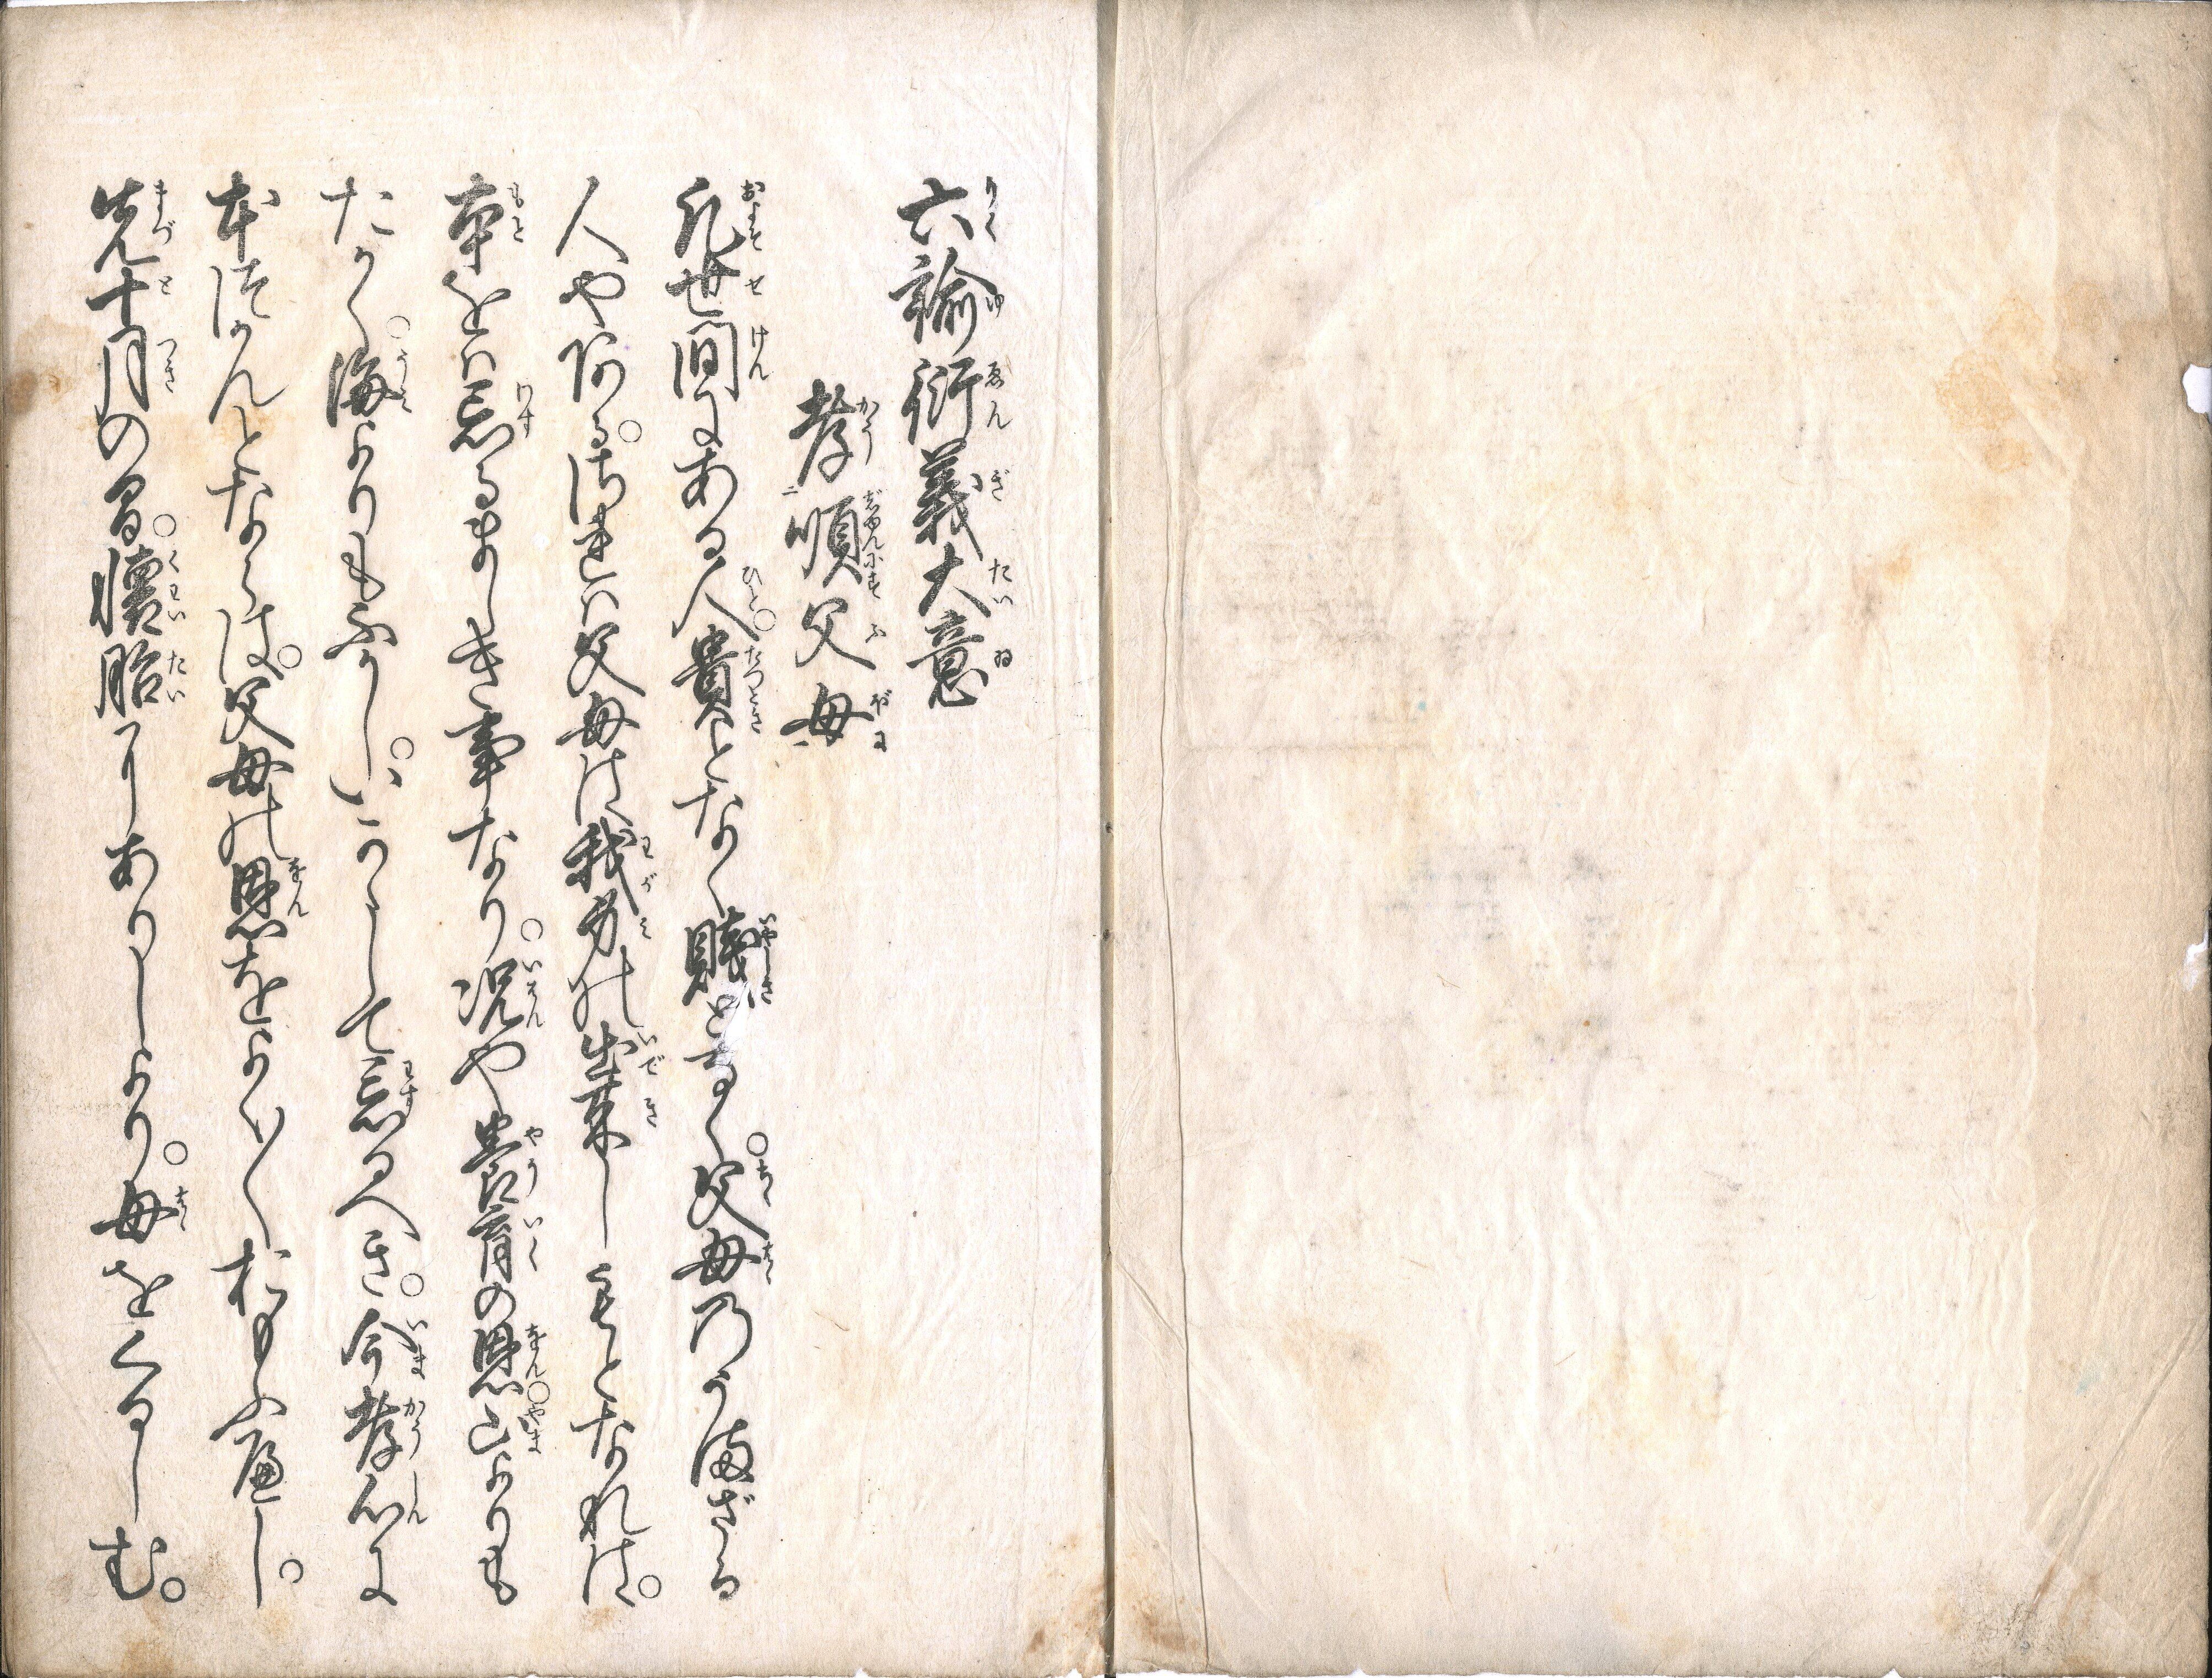 六諭衍義大意
孝順父母
凡世間にある人貴となく賤となく父母のうまざる
人やある。されハ父母は我身の出来しもとなれは。
本をハ忘るましき事なり。况や養育の恩山よりも
たかく海よりもふかし。いかゝして忘るへき。今孝心に
本つかんとならは。父母の恩をよく〳〵おもふへし。
先十月の間。懐胎にありしより。母をくるしむ。